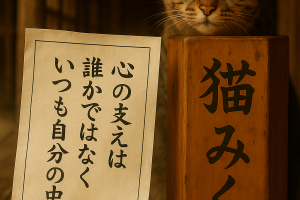 心の支えは
誰かではなく
いつも自分の中
猫みく